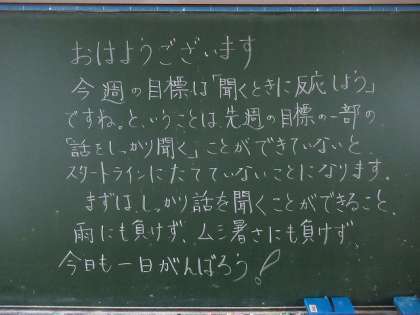 おはようございます
今週の目標は「聞くときに反応しよう」
ですね。と、いうことは、先週の目標の一部の
「話をしっかり聞く」ことができていないと
スタートラインにたてていないことになります。
まずは、しっかり話を聞くことができること、
雨にも負けず、ムシ暑さにも負けず、
今日も一日がんばろう!